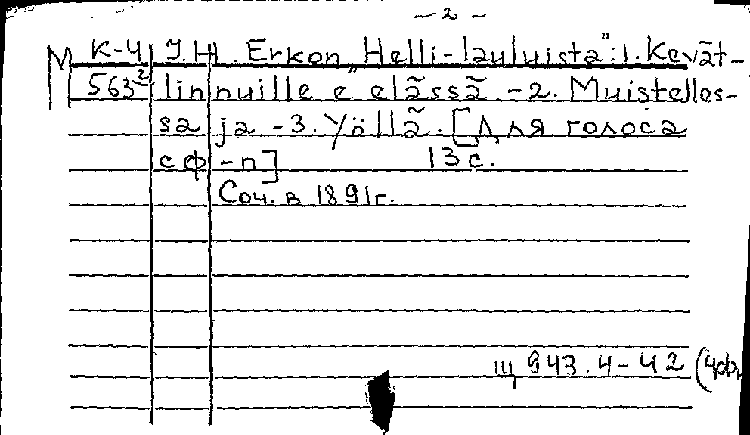 - 2 -
М К-4 J. H. Erkon „Helli-lauluista": 1. Kevät-
563² linnuille e eläs̈sä. - 2. Muistelles-
sa ja - 3. Yöllä. [Для голоса
с ф-п] 13 с.
Соч. в 1891г.
Щ 943.4-42 (Чфи